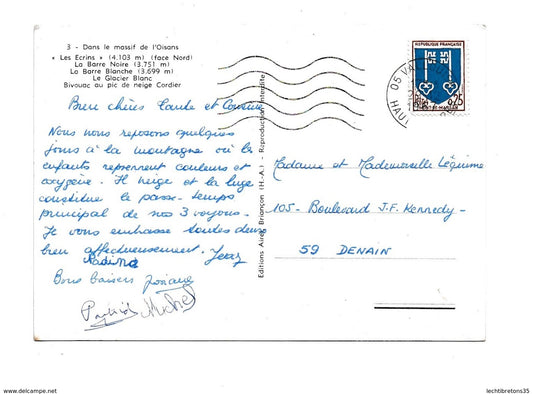 3 - Dans le massif de l'Oisans
« Les Ecrins » (4.103 m) (face Nord)
La Barre Noire (3.751 m)
La Barre Blanche (3.699 m)
Le Glacier Blanc
Bivouac au pic de neige Cordier
Bien chères Tante et Cousine
Nous nous reposons quelques
jours à la montagne où les
enfants reprennent couleurs et
oxygène. Il neige et la luge
constitue le passe-temps
principal de nos 3 voyous.
Je vous embrasse toutes deux
bien affectueusement.
Nadine
Bons baisers
Patrick Michel
Editions Aires Briançon (H.-A.) - Reproduction interdite
REPUBLIQUE FRANÇAISE
0,25
MONT-DE-MARSAN
05 VAL
HAU
Madame et Mademoiselle Lequime
105 - Boulevard J.F. Kennedy -
59 DENAIN
delcampe.net
lechtibretons35